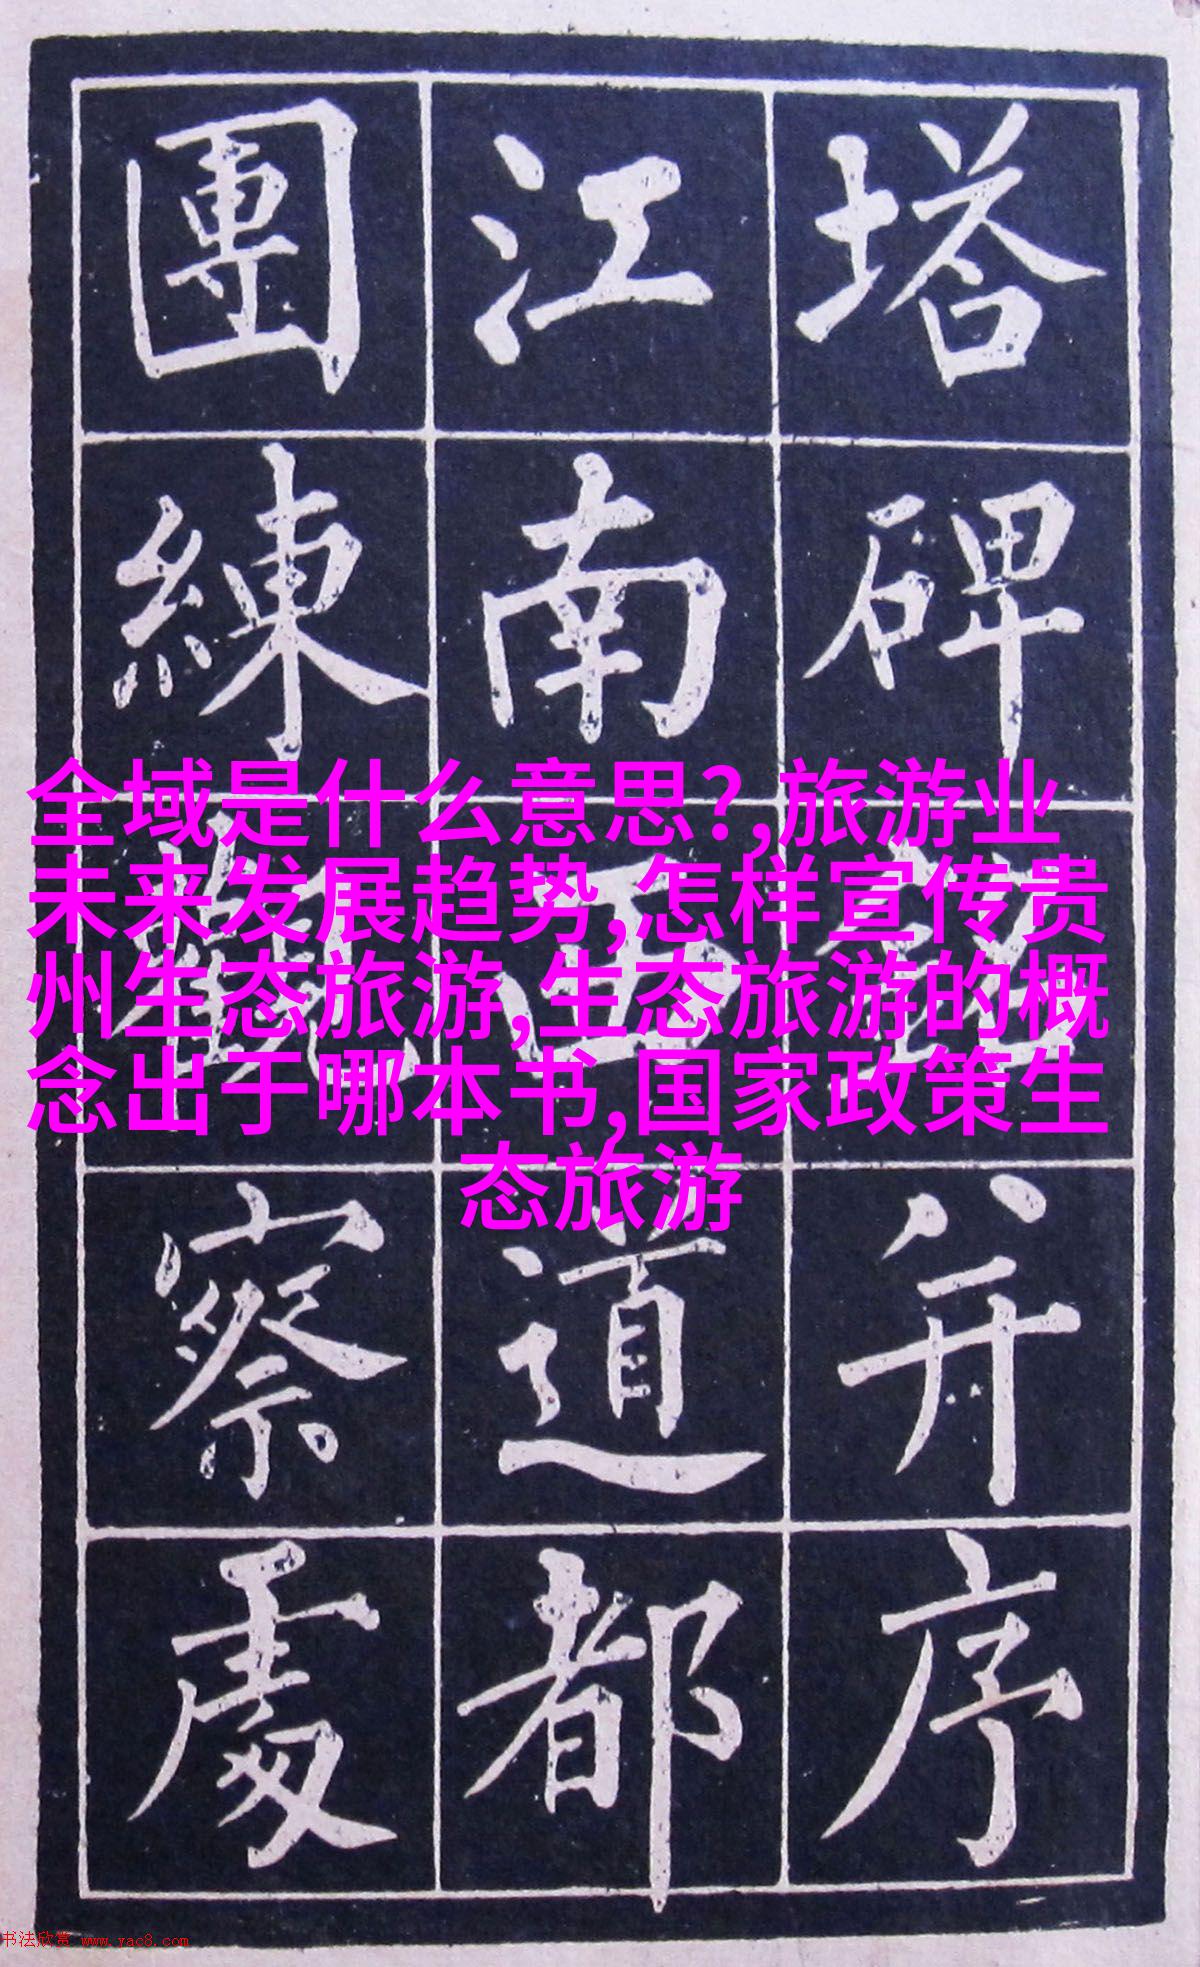 塔碑銘并序
江南西道都
團練觀察處
全域是什么意思?,旅游业
未来发展趋势,怎样宣传贵
州生态旅游,生态旅游的概
念出于哪本书,国家政策生
态旅游
书法欣赏 www.yac8.com